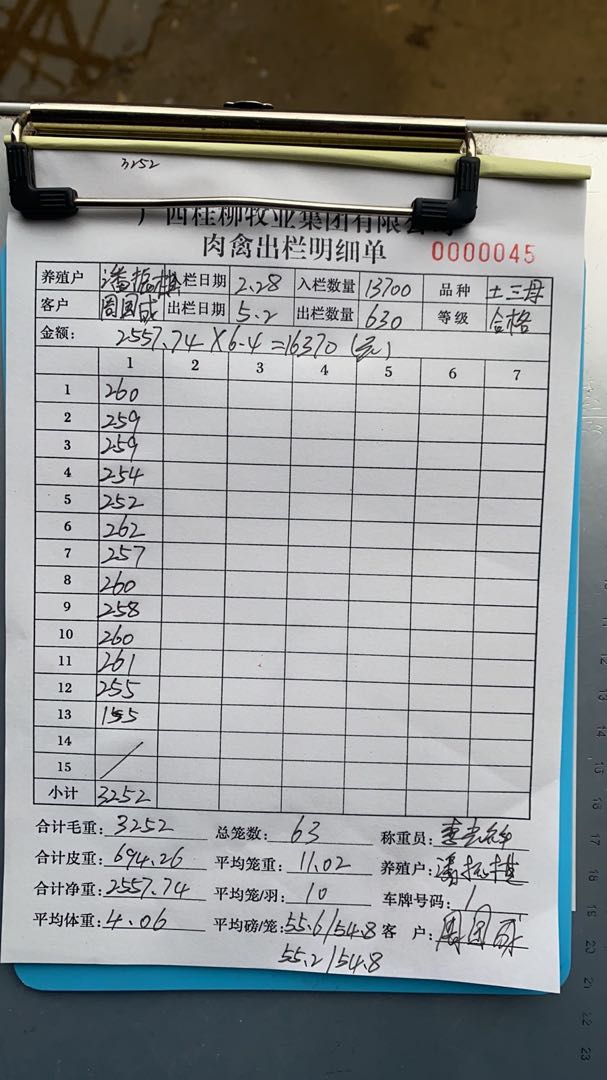 3252
广西桂柳牧业集团有限公
肉禽出栏明细单 0000045
养殖户 潘振 入栏日期 2.28 入栏数量 13700 品种 土三母
客户 周国成 出栏日期 5.2 出栏数量 630 等级 合格
金额: 2557.74×6.4=16370(元)
1 2 3 4 5 6 7
1 260
2 259
3 259
4 254
5 252
6 262
7 257
8 260
9 258
10 260
11 261
12 255
13 155
14
15
小计 3252
合计毛重: 3252 总笼数: 63 称重员:
合计皮重: 694.26 平均笼重: 11.02 养殖户: 潘振
合计净重: 2557.74 平均笼/羽: 10 车牌号码: /
平均体重: 4.06 平均磅/笼: 55.6/54.8 客 户: 周国成
55.2/54.8
12
13
14
15
16
17
18
19
20
21
22
23